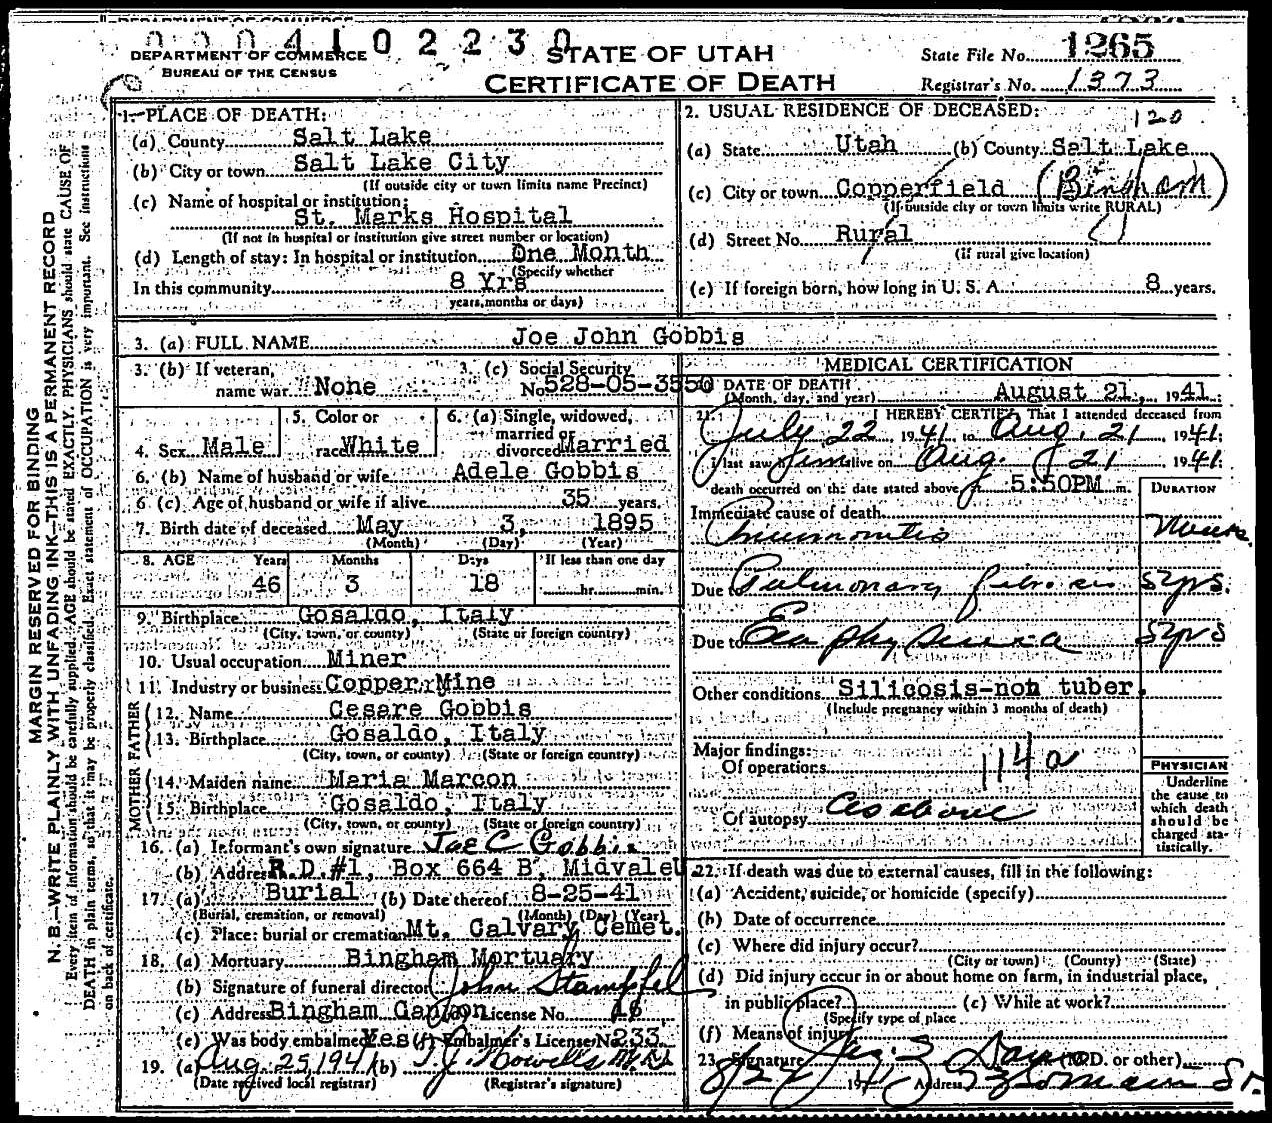 DEPARTMENT OF COMMERCE
0004102230
DEPARTMENT OF COMMERCE
BUREAU OF THE CENSUS
STATE OF UTAH
CERTIFICATE OF DEATH
State File No. 1265
Registrar's No. 1373
MARGIN RESERVED FOR BINDING
N. B.—WRITE PLAINLY WITH UNFADING INK—THIS IS A PERMANENT RECORD
Every item of information should be carefully supplied. AGE should be stated EXACTLY. PHYSICIANS should state CAUSE OF
DEATH in plain terms, so that it may be properly classified. Exact statement of OCCUPATION is very important. See instructions
on back of certificate.
1. PLACE OF DEATH:
(a) County Salt Lake
(b) City or town Salt Lake City
(If outside city or town limits name Precinct)
(c) Name of hospital or institution:
St. Marks Hospital
(If not in hospital or institution give street number or location)
(d) Length of stay: In hospital or institution One Month
(Specify whether
In this community 8 Yrs
years, months or days)
2. USUAL RESIDENCE OF DECEASED:
120
(a) State Utah (b) County Salt Lake
(c) City or town Copperfield (Bingham)
(If outside city or town limits write RURAL)
(d) Street No. Rural
(If rural give location)
(e) If foreign born, how long in U. S. A. 8 years.
3. (a) FULL NAME Joe John Gobbis
3. (b) If veteran,
name war None
3. (c) Social Security
No. 528-05-3550
4. Sex Male
5. Color or
race White
6. (a) Single, widowed,
married or
divorced Married
6. (b) Name of husband or wife Adele Gobbis
6 (c) Age of husband or wife if alive 35 years.
7. Birth date of deceased May 3, 1895
(Month) (Day) (Year)
8. AGE Years Months Days If less than one day
46 3 18 hr. min.
9. Birthplace Gosaldo, Italy
(City, town, or county) (State or foreign country)
10. Usual occupation Miner
11. Industry or business Copper Mine
FATHER
12. Name Cesare Gobbis
13. Birthplace Gosaldo, Italy
(City, town, or county) (State or foreign country)
MOTHER
14. Maiden name Maria Marcon
15. Birthplace Gosaldo, Italy
(City, town, or county) (State or foreign country)
16. (a) Informant's own signature Joe C Gobbis
(b) Address R.D.#1, Box 664 B, Midvale U
17. (a) Burial (b) Date thereof 8-25-41
(Burial, cremation, or removal) (Month) (Day) (Year)
(c) Place: burial or cremation Mt. Calvary Cemet.
18. (a) Mortuary Bingham Mortuary
(b) Signature of funeral director John Stampfel
(c) Address Bingham Canyon (d) License No. 16
(e) Was body embalmed Yes (f) Embalmer's License No. 233
19. (a) Aug. 25, 1941 (b) T. J. Howells M.D.
(Date received local registrar) (Registrar's signature)
MEDICAL CERTIFICATION
20. DATE OF DEATH
(Month, day, and year) August 21, 1941
21. I HEREBY CERTIFY, That I attended deceased from
July 22 1941 to Aug. 21, 1941;
I last saw him alive on Aug. 21 1941
death occurred on the date stated above at 5:50PM m.
DURATION
Immediate cause of death
Pneumonitis
Due to Pulmonary fibrosis 5 yrs.
Due to Emphysema 5 yrs
Other conditions Silicosis-non tuber.
(Include pregnancy within 3 months of death)
Major findings:
Of operations
114a
Of autopsy As above
PHYSICIAN
Underline
the cause to
which death
should be
charged sta-
tistically.
22. If death was due to external causes, fill in the following:
(a) Accident, suicide, or homicide (specify)
(b) Date of occurrence
(c) Where did injury occur?
(City or town) (County) (State)
(d) Did injury occur in or about home on farm, in industrial place,
in public place? (e) While at work?
(Specify type of place
(f) Means of injury
23. Signature (M.D. or other)
1941 Address